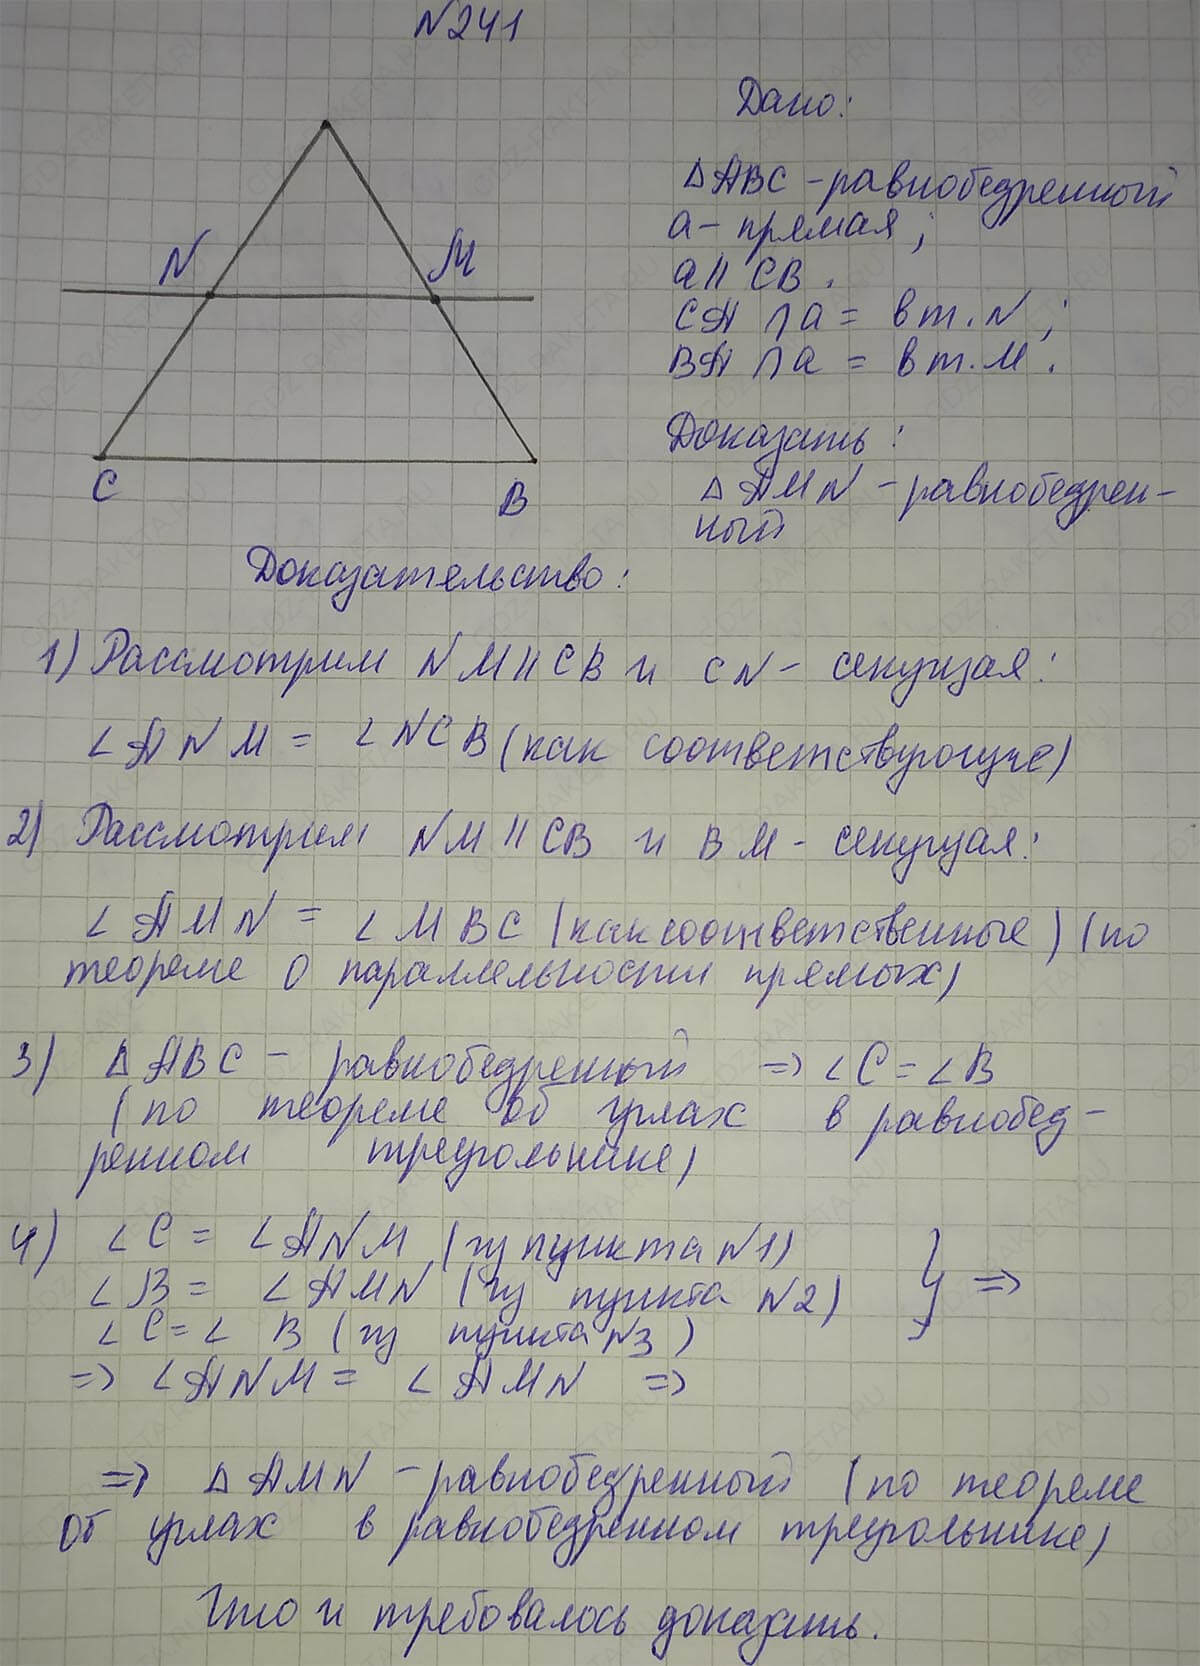 N241
Дано:
△ABC - равнобедренный
a - прямая;
a || CB.
CA ∩ a = в т. N;
BA ∩ a = в т. M.
Доказать:
△AMN - равнобедрен-
ный
N
M
C
B
Доказательство:
1) Рассмотрим NM || CB и CN - секущая:
∠ANM = ∠NCB (как соответствующие)
2) Рассмотрим NM || CB и BM - секущая:
∠AMN = ∠MBC (как соответственные) (по
теореме о параллельности прямых)
3) △ABC - равнобедренный => ∠C = ∠B
(по теореме об углах в равнобед-
ренном треугольнике)
4) ∠C = ∠ANM (из пункта N1)
∠B = ∠AMN (из пункта N2) } =>
∠C = ∠B (из пункта N3)
=> ∠ANM = ∠AMN =>
=> △AMN - равнобедренный (по теореме
об углах в равнобедренном треугольнике)
Что и требовалось доказать.